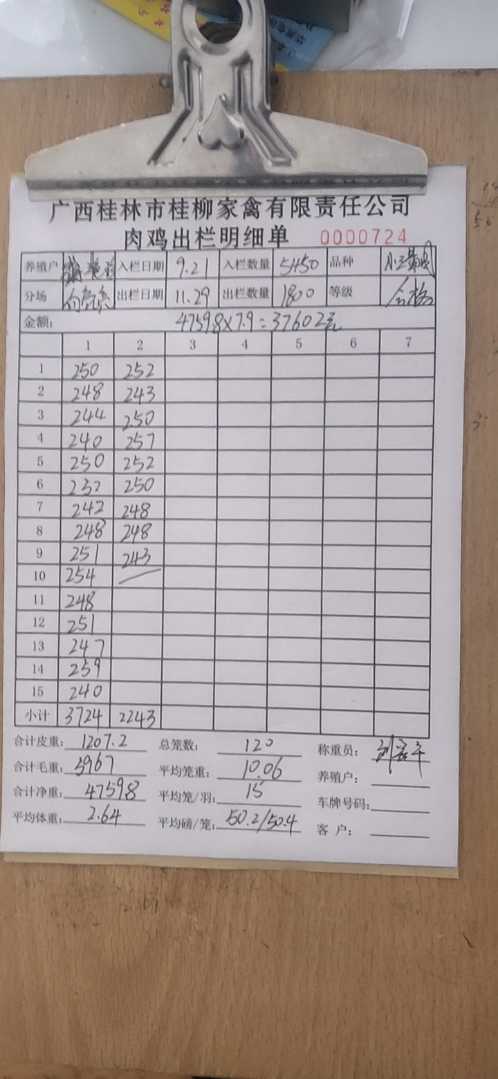 广西桂林市桂柳家禽有限责任公司
肉鸡出栏明细单 0000724
养殖户 入栏日期 9.21 入栏数量 5450 品种
分场 出栏日期 11.29 出栏数量 1800 等级 合格
金额: 47598×7.9=37602元
1 2 3 4 5 6 7
1 250 252
2 248 243
3 244 250
4 240 257
5 250 252
6 232 250
7 242 248
8 248 248
9 251 243
10 254
11 248
12 251
13 247
14 259
15 240
小计 3724 2243
合计皮重: 1207.2 总笼数: 120 称重员:
合计毛重: 5967 平均笼重: 10.06 养殖户:
合计净重: 47598 平均笼/羽: 15 车牌号码:
平均体重: 2.64 平均磅/笼: 50.2/50.4 客 户: